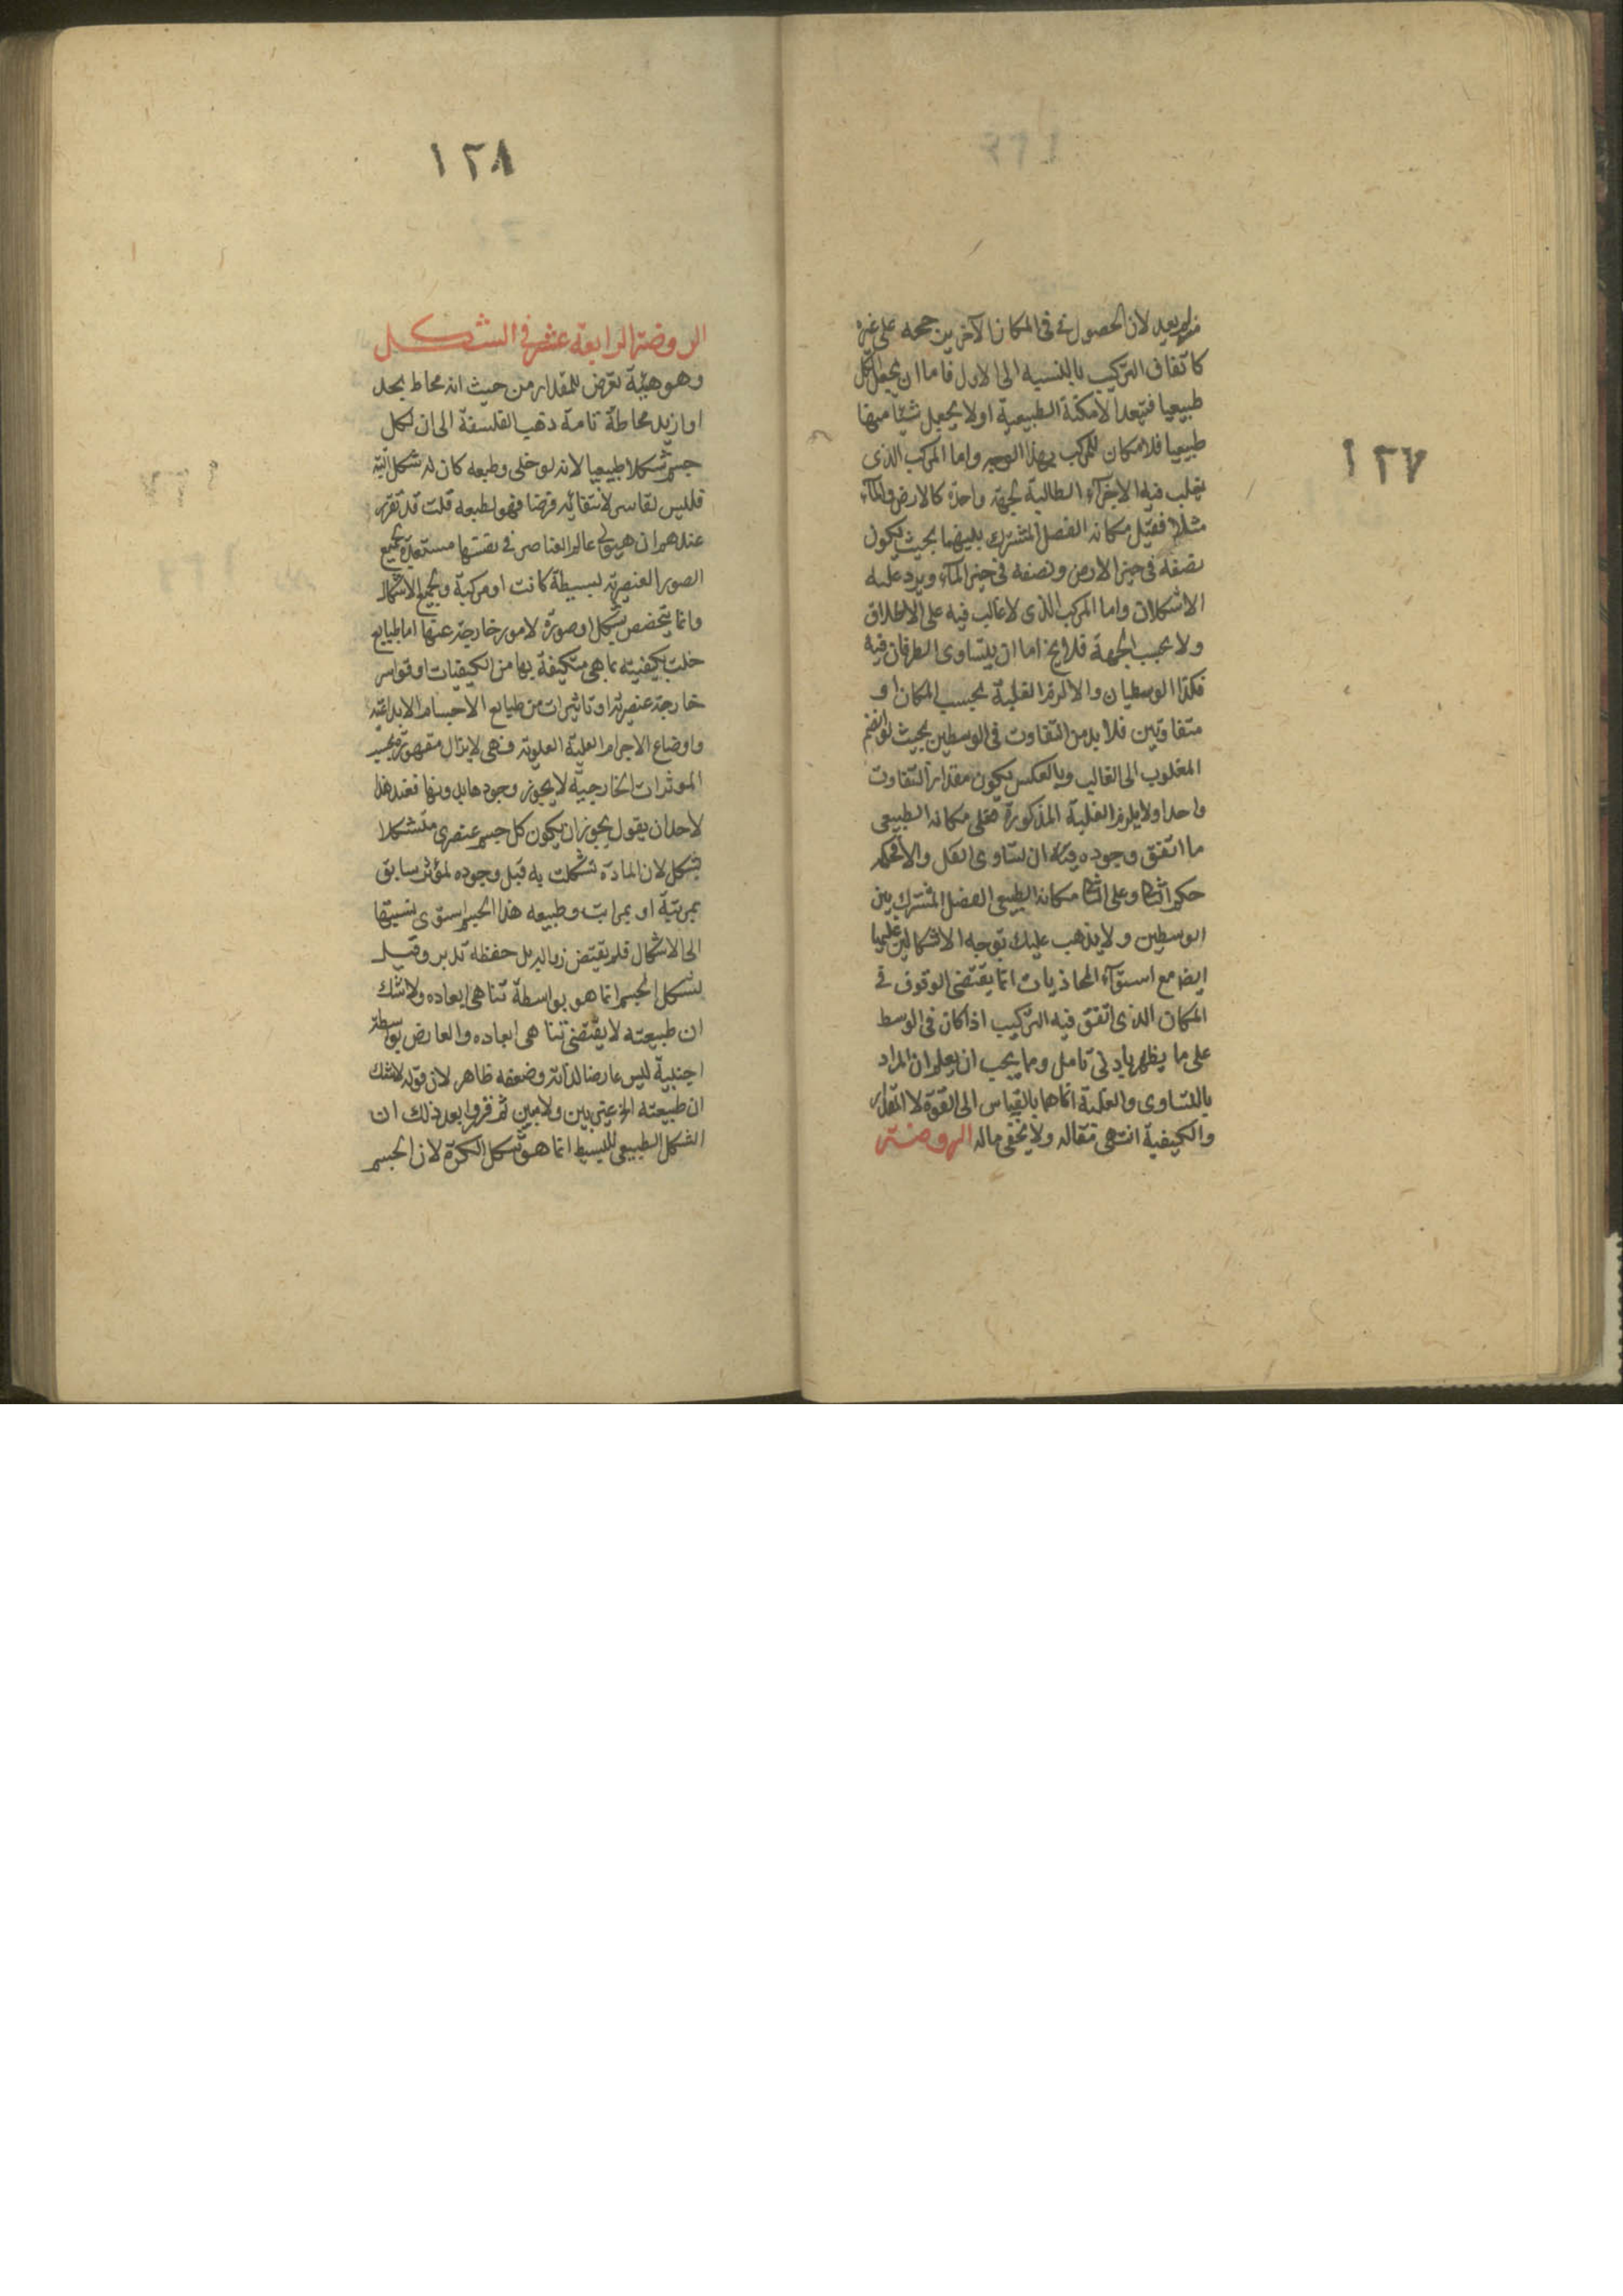 ١٢٧
لان الحصول فى المكان الآخر بن جحه على غيره
كاتفاق التركيب بالنسبه الى الاول فاما ان يجعل الكل
طبيعيا فتعدد الامكنة الطبيعية او لا يجعل شيئا منها
طبيعيا فلا مكان للمركب بهذا الوجه واما المركب الذى
يغلب فيه الاجزآء الطالبة لجهة واحدة كالارض والمآء
مثلا فقيل مكانه الفصل المشترك بينهما بحيث يكون
نصفه فى حيز الارض ونصفه فى حيز المآء ويرد عليه
الاشكالان واما المركب الذى لا غالب فيه على الاطلاق
ولا بحسب الجهة فلا يخ اما ان يتساوى الطرفان فيه
فكذا الوسطيان والا لزم الغلبة بحسب المكان او
متفاوتين فلا بد من التفاوت فى الوسطين بحيث لو انضم
المغلوب الى الغالب وبالعكس يكون مقدار التفاوت
واحدا ولا يلزم الغلبة المذكورة فعلى مكانه الطبيعى
ما اتفق وجوده فيه ان تساوى الكل والا فحكمه
حكم وعلى مكانه الطبيعى الفصل المشترك بين
الوسطين ولا يذهب عليك توجه الاشكالين عليها
ايضا مع استوآء المحاذيات انما يقتضى الوقوف فى
المكان الذى اتفق فيه التركيب اذا كان فى الوسط
على ما يظهر بادنى تامل ومما يجب ان يعلم ان المراد
بالتساوى والغلبة انما هما بالقياس الى القوة لا المقدار
والكيفية انتهى مقاله ولا يخفى ماله الروضة
١٢٨
الروضة الرابعة عشر فى الشكل
وهو هيئة تعرض للمقدار من حيث انه محاط بحد
او ازيد محاطة تامة ذهب الفلسفة الى ان لكل
جسم شكلا طبيعيا لانه لو خلى وطبعه كان له شكل البتة
فليس لقاسر لانتفائه فرضا فهو لطبعه قلت قد تقرر
عندهم ان هيولى عالم العناصر فى نفسها مستعدة لجميع
الصور العنصرية بسيطة كانت او مركبة ولجميع الاشكال
وانما يتخصص بشكل او صورة لامور خارجة عنها اما طبايع
خلت بكيفيته بما هى متكيفة بها من الكيفيات او قواسر
خارجة عنصرية او تاثيرات من طبايع الاجسام الابداعية
واوضاع الاجرام العلية العلوية فهى لا يزال مقهورة بحسب
الموثرات الخارجية لا يجوز وجودها بدونها فعند هذا
لاحد ان يقول يجوز ان يكون كل جسم عنصرى متشكلا
بشكل لان المادة تشكلت به قبل وجوده لمؤثر سابق
بمرتبة او بمراتب وطبيعه هذا الجسم استوى نسبتها
الى الاشكال فلم يقتض زواله بل حفظه تدبر وقيل
تشكل الجسم انما هو بواسطة تناهى ابعاده ولا شك
ان طبيعته لا يقتضى تناهى ابعاده والعارض بواسطة
اجنبية ليس عارضا لذاته وضعفه ظاهر لان قوله لا شك
ان طبيعته الخ غير بين ولا مبين ثم قرروا بعد ذلك ان
الشكل الطبيعى للبسيط انما هو شكل الكرة لان الجسم